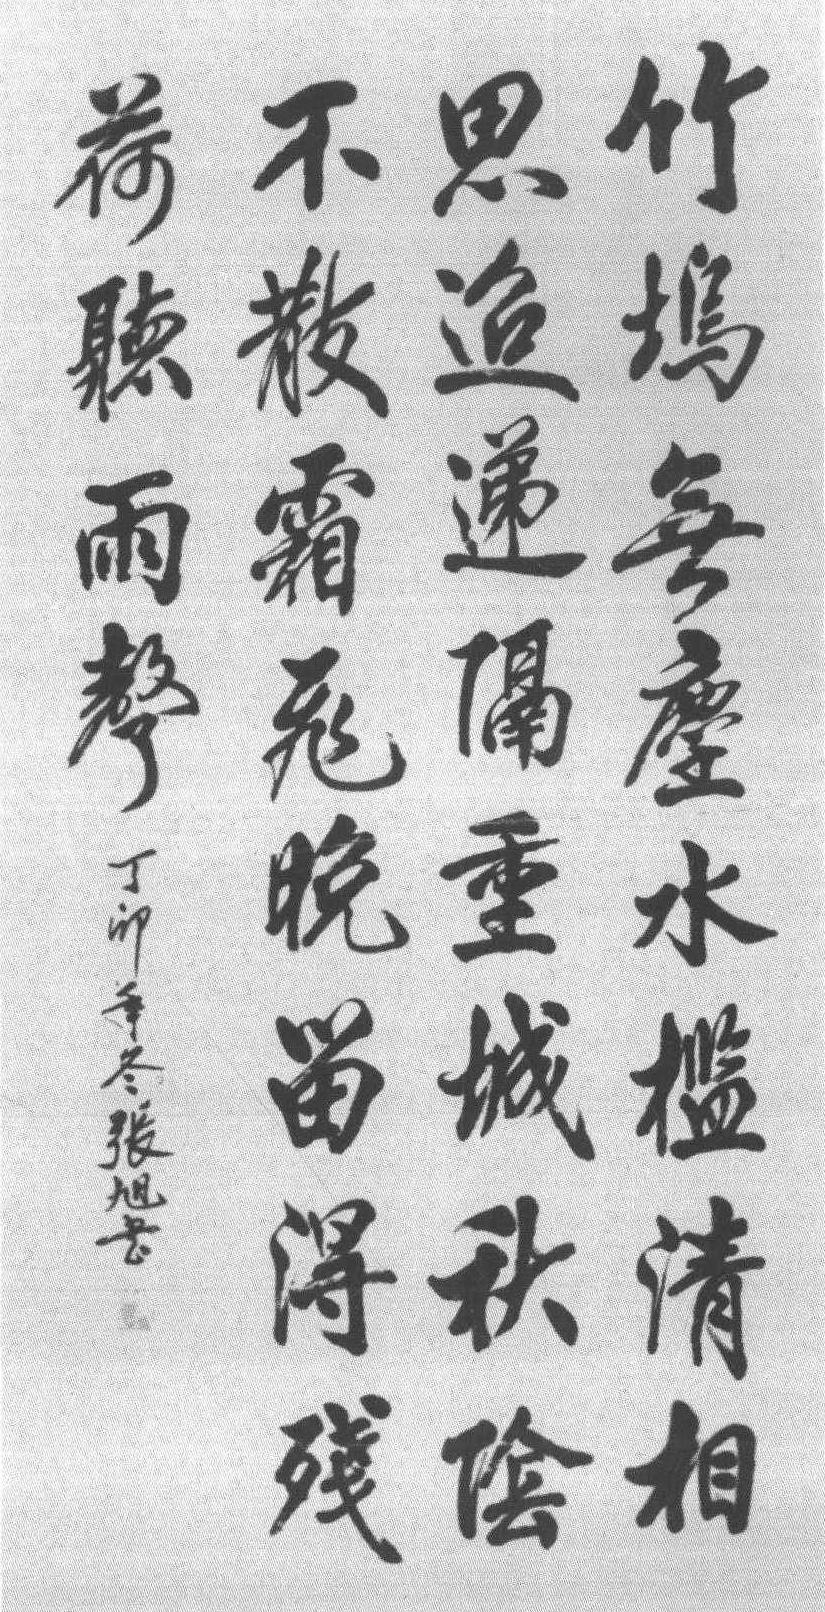 竹塢無塵水檻清相
思迨遞隔重城秋陰
不散霜飛晚留得殘
荷聽雨聲
丁卯年冬張旭书